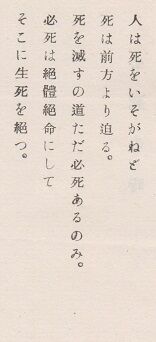 人は死をいそがねど
死は前方より迫る。
死を滅すの道ただ必死あるのみ。
必死は絕體絕命にして
そこに生死を絕つ。